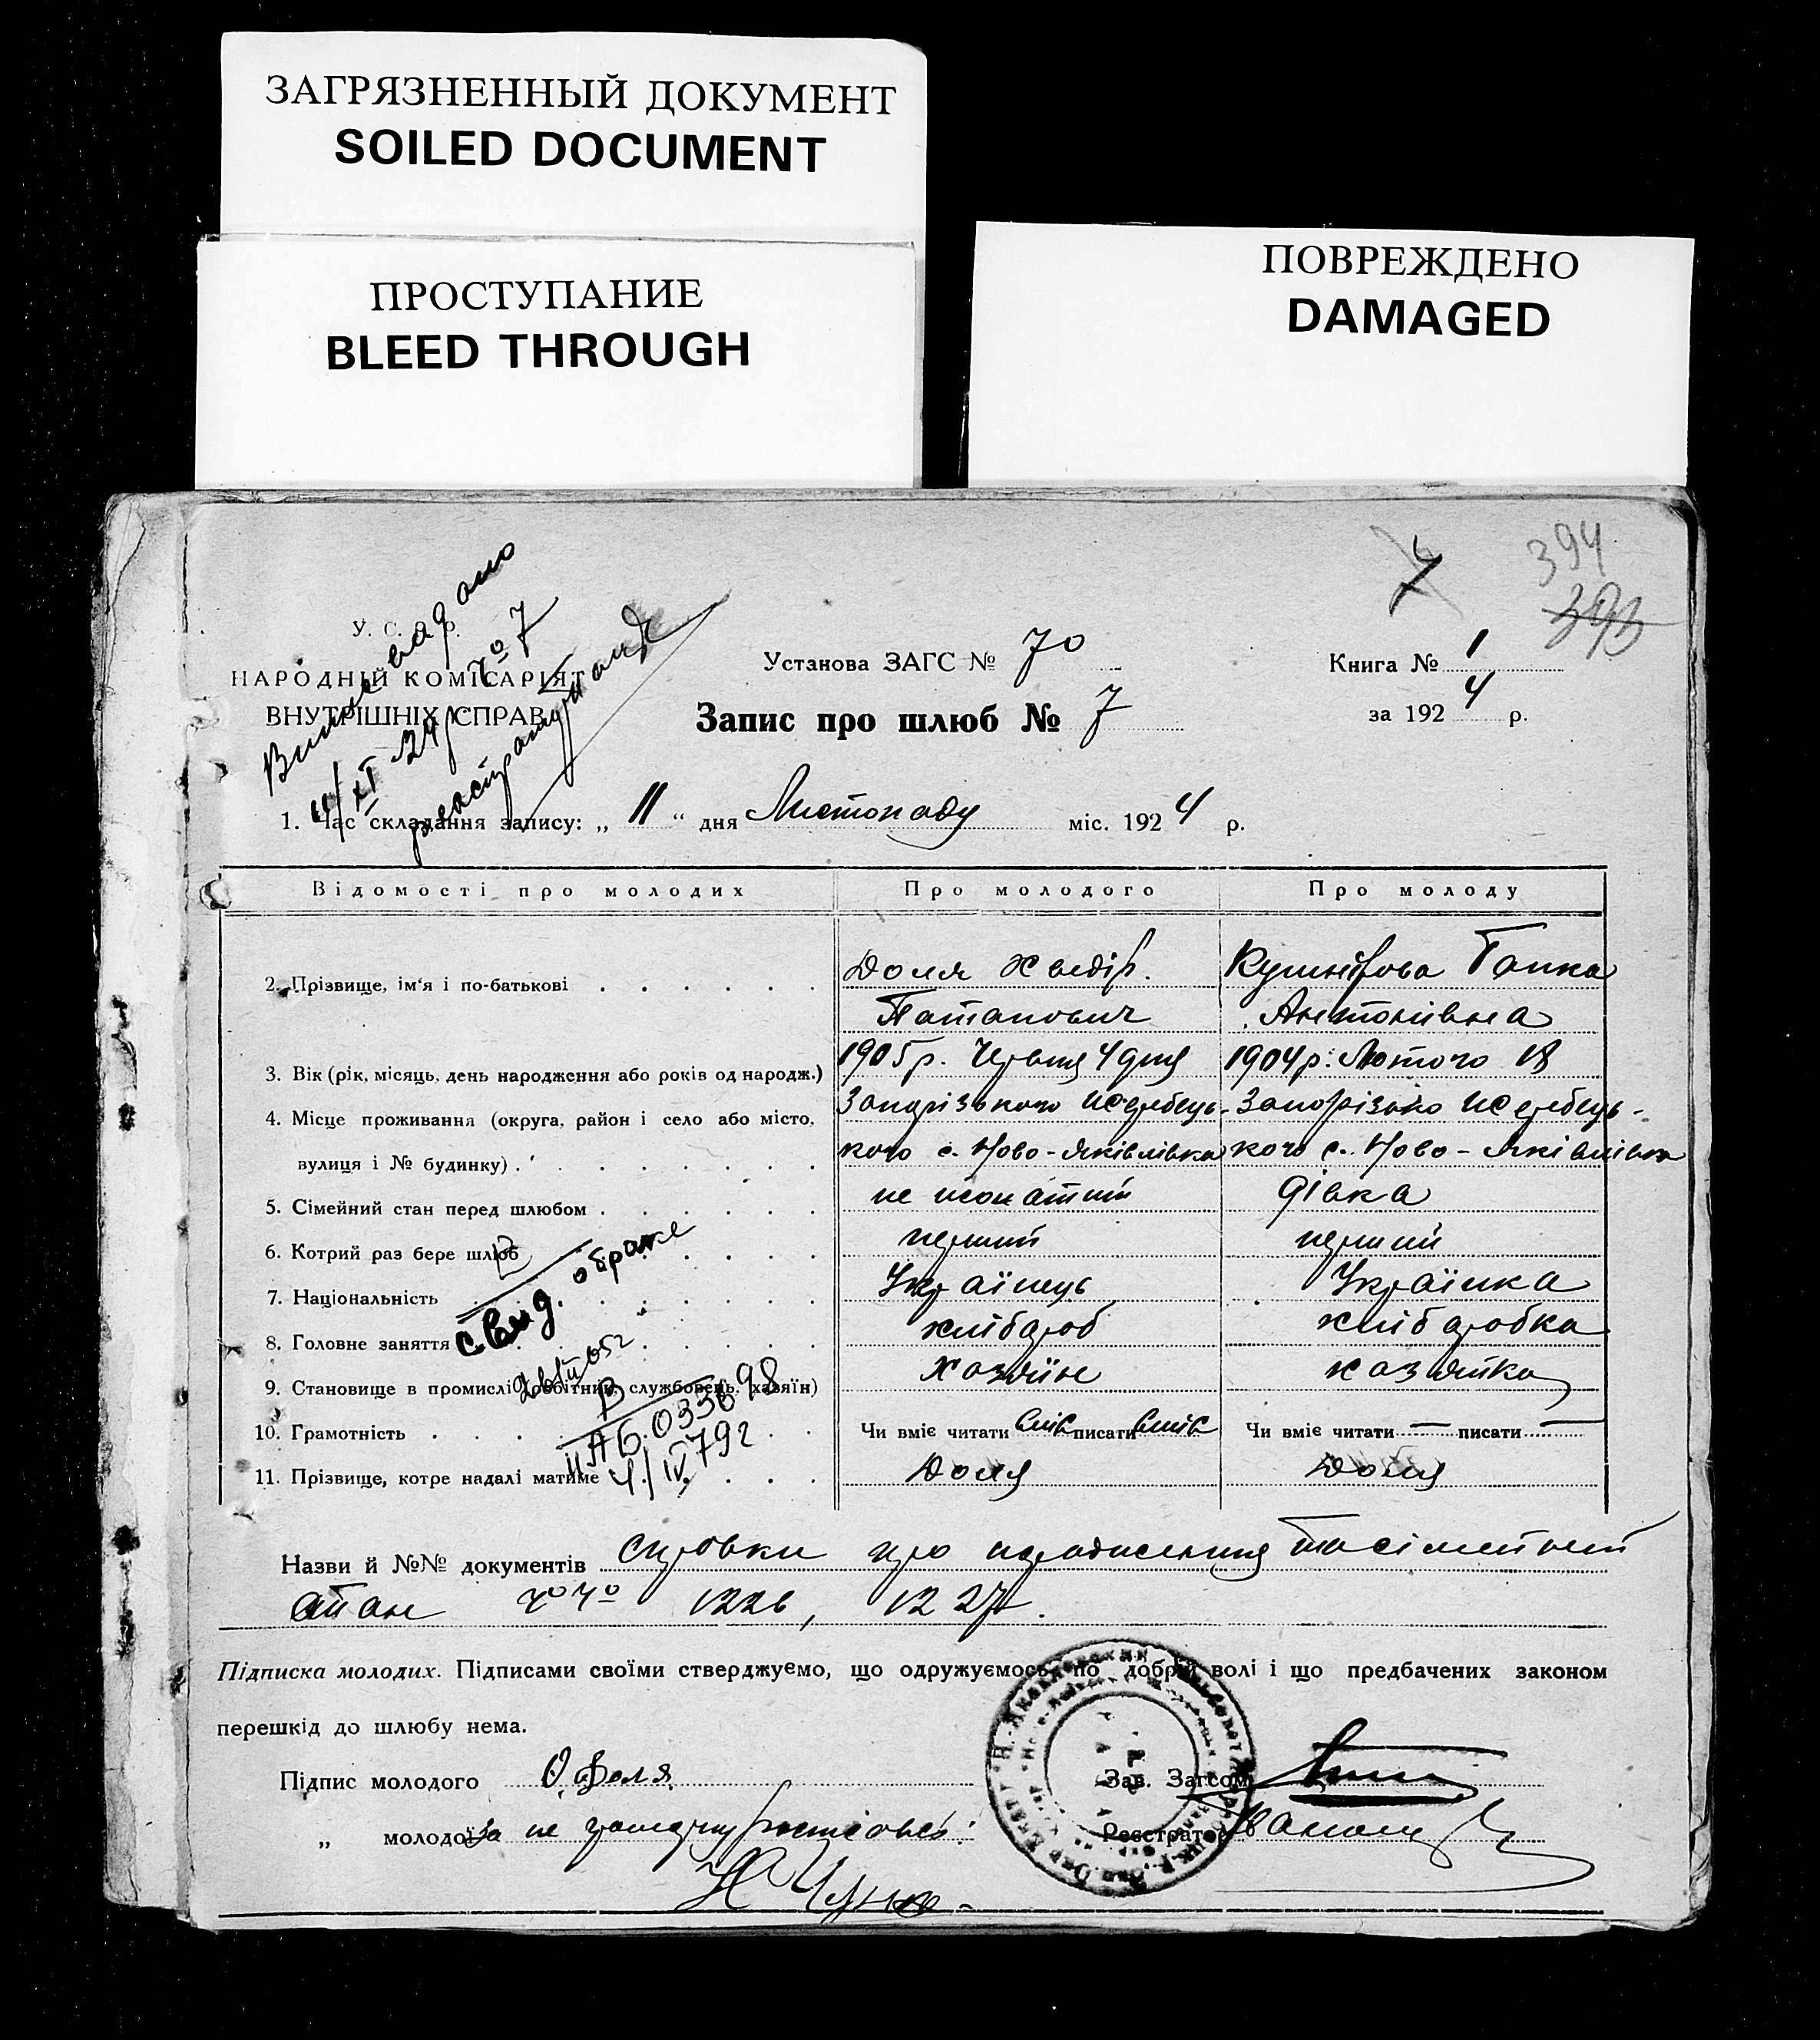 ЗАГРЯЗНЕННЫЙ ДОКУМЕНТ
SOILED DOCUMENT
ПРОСТУПАНИЕ
BLEED THROUGH
ПОВРЕЖДЕНО
DAMAGED
7
394
393
У. С. Р.
НАРОДНІЙ КОМІСАРІЯТ
ВНУТРІШНІХ СПРАВ
Установа ЗАГС № 70
Книга № 1
Запис про шлюб № 7
за 1924 р.
1. Час складання запису: „ 11 “ дня Листопаду міс. 1924 р.
Відомості про молодих Про молодого Про молоду
2. Прізвище, ім'я і по-батькові
Доля Хведір. Кушнірова Ганка
Потапович Антонівна
3. Вік (рік, місяць, день народження або років од народж.) 1905р. Червня 4 дня 1904р. Лютого 18
4. Місце проживання (округа, район і село або місто, вулиця і № будинку)
кого с. Ново-Яківлівка кого с. Ново-Яківлівка
5. Сімейний стан перед шлюбом не жонатий дівка
6. Котрий раз бере шлюб перший перший
7. Національність Українець Українка
8. Головне заняття хлібороб хліборобка
9. Становище в промислі (робітник, службовець, хазяїн) Хазяїн хазяйка
10. Грамотність Чи вміє читати вміє писати вміє Чи вміє читати — писати —
11. Прізвище, котре надалі матиме Доля Доля
свид. о браке
Назви й №№ документів справки про народження та сімейний
стан №№ 1226, 1227.
Підписка молодих. Підписами своїми стверджуємо, що одружуємось по добрій волі і що предбачених законом
перешкід до шлюбу нема.
Підпис молодого Доля
Зав. Загсом
„ молодої за не
Реєстратор